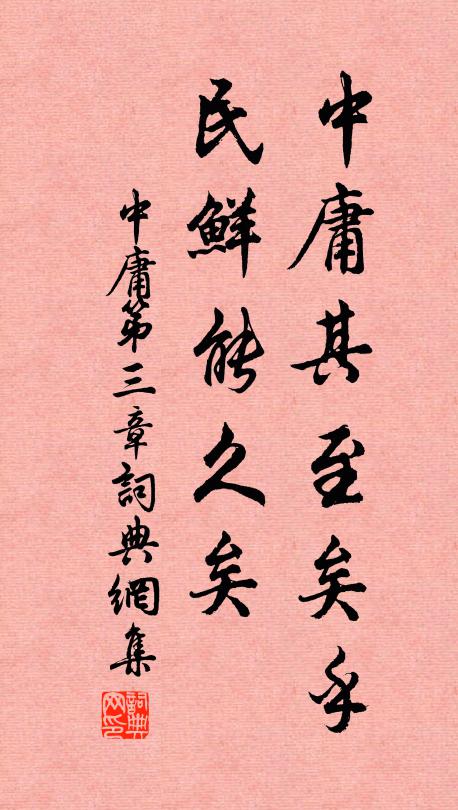 中庸其至矣乎
民鮮能久矣
中庸第三章詞典網集
詞典網印